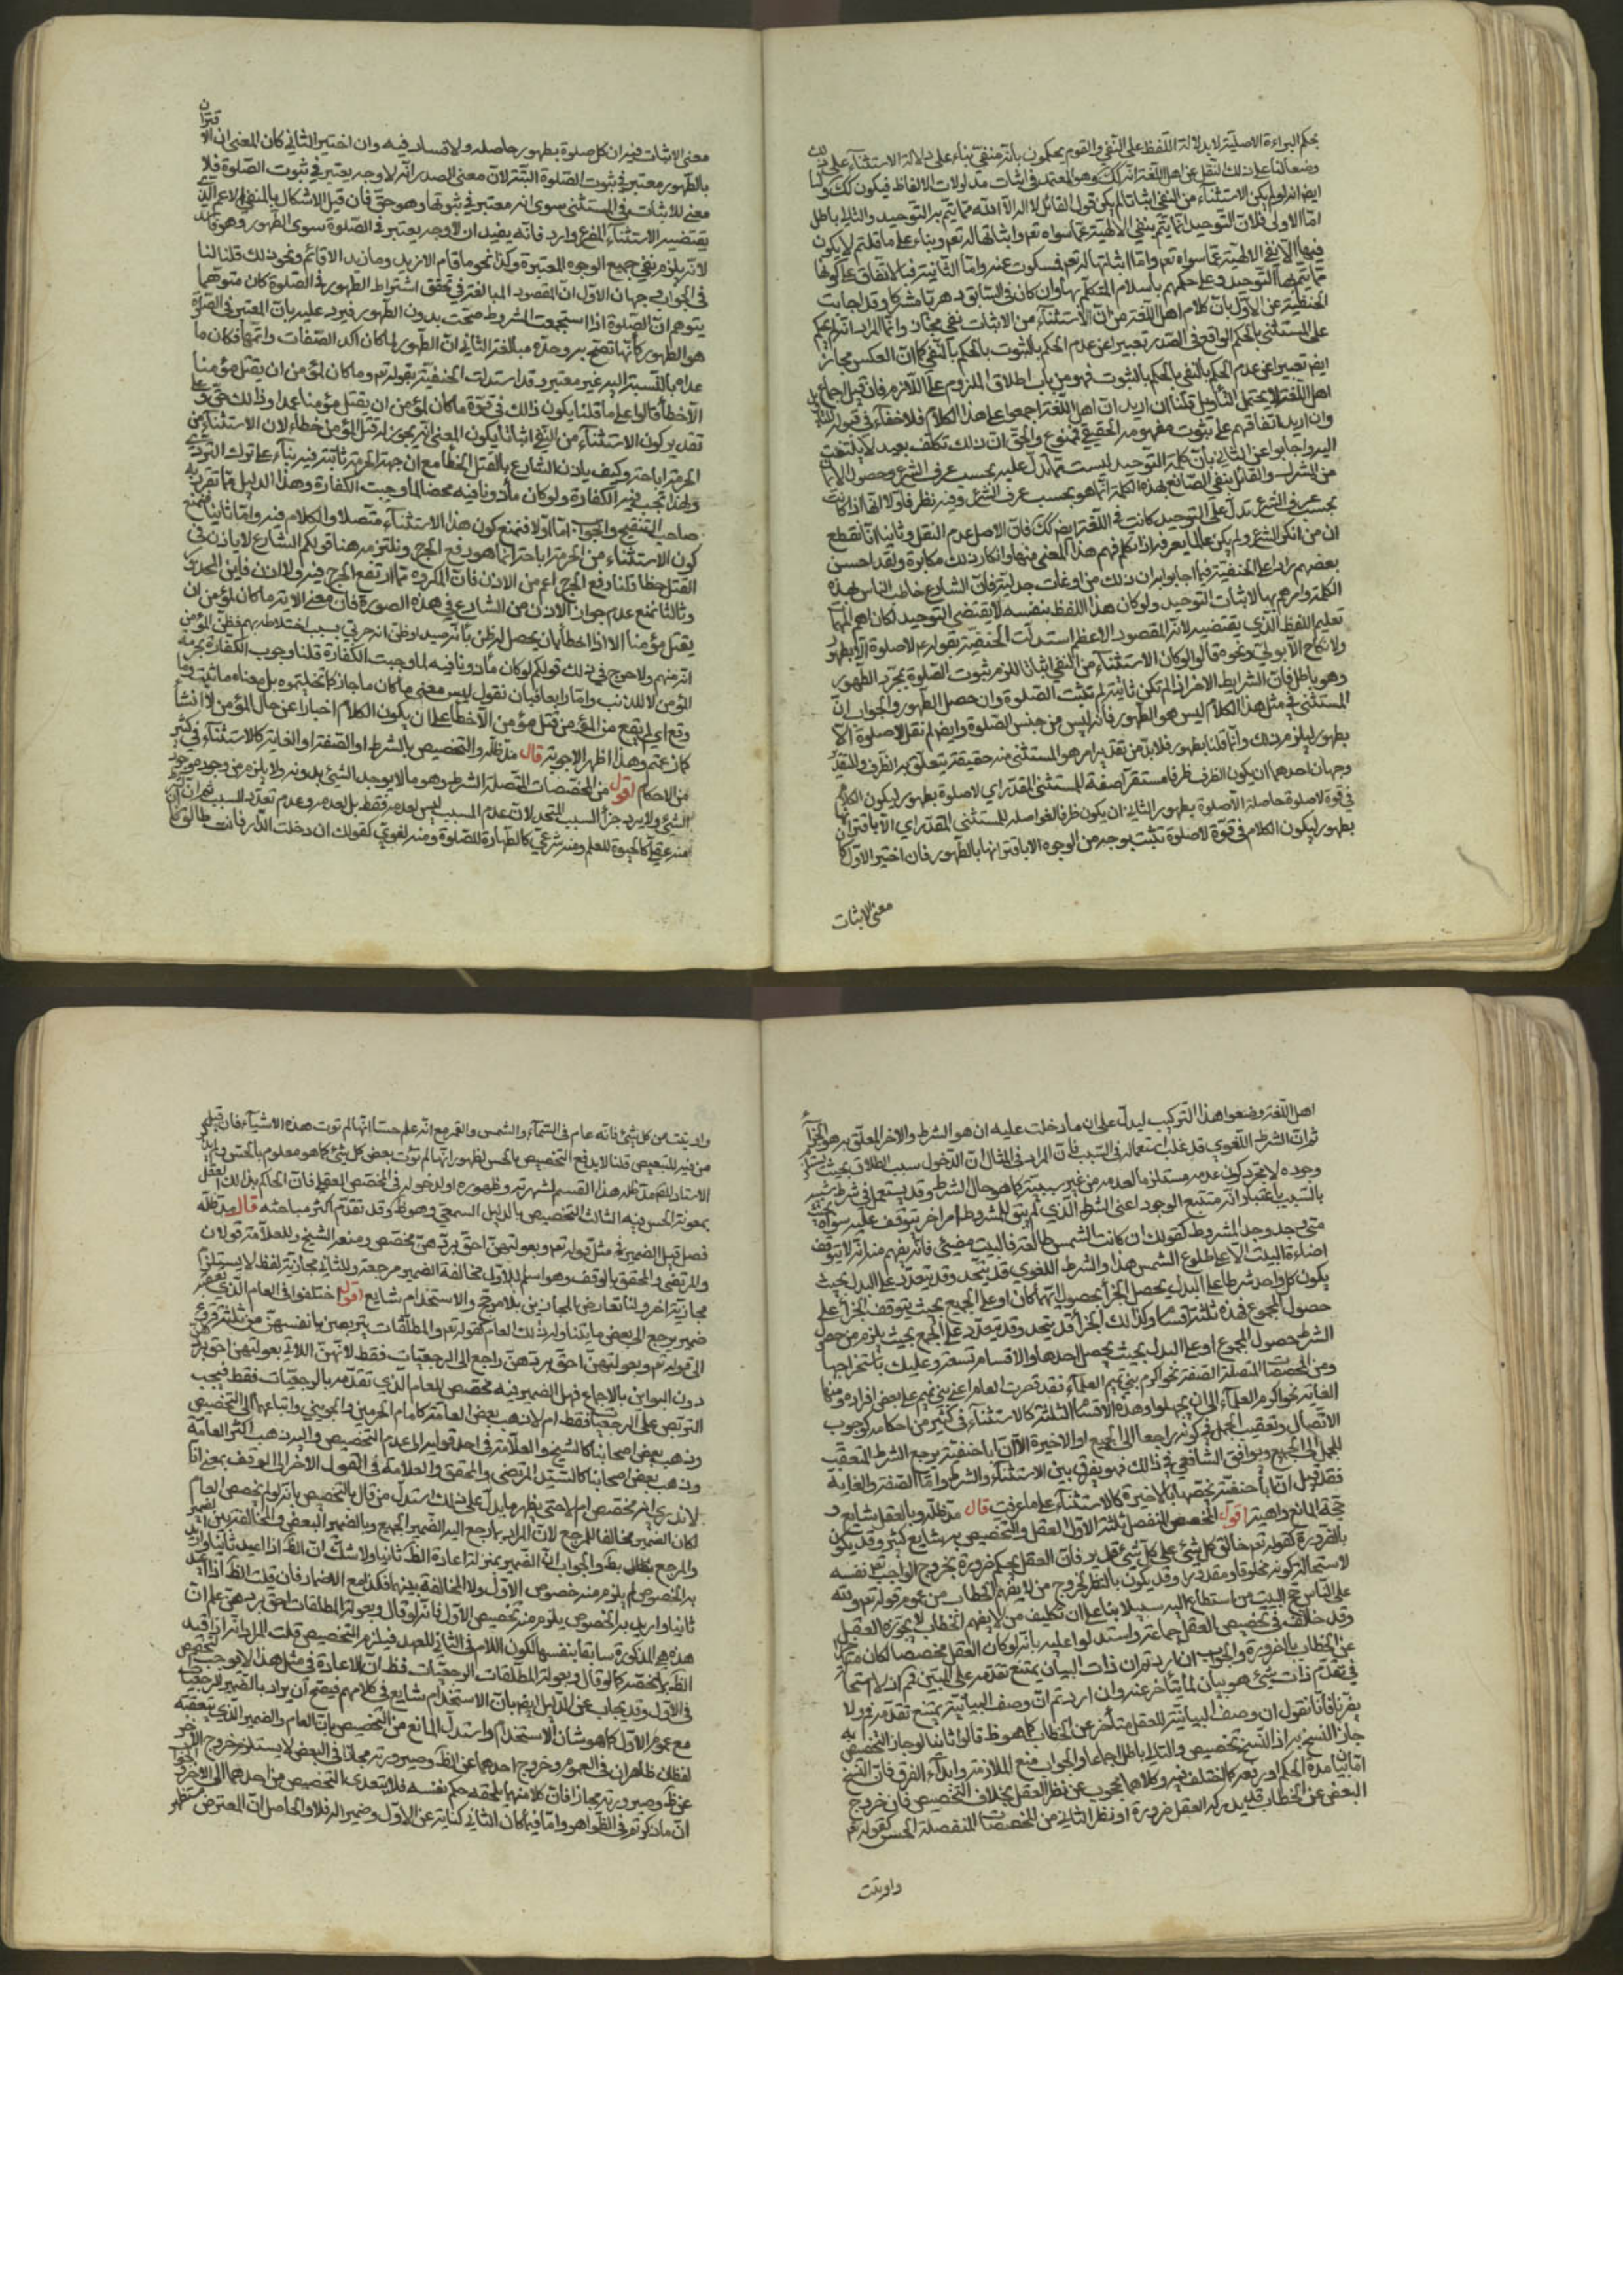 بحكم البراءة الاصلية لا بدلالة اللفظ على النفي والقوم يحكمون بانه منفي بناء على دلالة الاستثناء على ذلك
وضعا لنا على ذلك النقل عن اهل اللغة انه كك وهو المعتمد في اثبات مدلولات الالفاظ فيكون كك ولنا
ايضا انه لو لم يكن الاستثناء من النفي اثباتا لم يكن قول القائل لا اله الا الله مما يتم به التوحيد والتالي باطل
اما الاولى فلان التوحيد انما يتم بنفي الالهية عما سواه تع واثباتها له تع وبناء على ما قلتم لا يكون
فيها الا نفي الالهية عما سواه تع واما اثباتها له تع فمسكوت عنه واما الثانية فبالاتفاق على كونها
مما يتم بها التوحيد وعلى حكمهم باسلام المتكلم بها وان كان في السابق دهريا مشركا وقد اجابت
الحنفية عن الاول بان كلام اهل اللغة من ان الاستثناء من الاثبات نفي مجاز وانما المراد انه لم يحكم
على المستثنى بالحكم الواقع في الصدر تعبيرا عن عدم الحكم بالثبوت بالحكم بالنفي كما ان العكس مجاز
ايضا تعبيرا عن عدم الحكم بالنفي بالحكم بالثبوت فهو من باب اطلاق الملزوم على اللازم فان قيل اجماع
اهل اللغة لا يحتمل التأويل قلنا ان اريد ان اهل اللغة اجمعوا على هذا الكلام فلا خفاء في قبوله التأويل
وان اريد اتفاقهم على ثبوت مفهومه الحقيقي فممنوع والحق ان ذلك تكلف بعيد لا يلتفت
اليه واجابوا عن الثاني بان كلمة التوحيد ليست مما تدل عليه بحسب عرف الشرع وحصول الايمان
من المشرك والقائل بنفي الصانع بهذه الكلمة انما هو بحسب عرف الشرع وفيه نظر فاولا لانها اذا كانت
بحسب عرف الشرع تدل على التوحيد كانت في اللغة ايضا كك فان الاصل عدم النقل وثانيا انا نقطع
ان من انكر الشرع ولم يكن عالما يعرفه اذا تكلم فهم هذا المعنى منها وانكار ذلك مكابرة ولقد احسن
بعضهم رادا على الحنفية فيما اجابوا به ان ذلك من اوغات جدلية فان الشارع خاطب الناس بهذه
الكلمة وامرهم بها لاثبات التوحيد ولو كان هذا اللفظ بنفسه لا يقتضي التوحيد لكان اهم المهمات
تعليم اللفظ الذي يقتضيه لانه المقصود الاعظم استدلت الحنفية بقوله ع لا صلوة الا بطهور
ولا نكاح الا بولي ونحوه قالوا لو كان الاستثناء من النفي اثباتا للزم ثبوت الصلوة بمجرد الطهور
وهو باطل فان الشرايط الاخر اذا لم تكن ثابتة لم تثبت الصلوة وان حصل الطهور والجواب ان
المستثنى في مثل هذا الكلام ليس هو الطهور فانه ليس من جنس الصلوة وايضا لم نقل لا صلوة الا
بطهور ليلزم ذلك وانما قلنا بطهور فلا بد من تقدير امر هو المستثنى منه حقيقة يتعلق به الظرف والتقدير
وجهان احدهما ان يكون الظرف ظرفا مستقرا صفة للمستثنى المقدر اي لا صلوة بطهور ليكون الكلام
في قوة لا صلوة حاصلة الا صلوة بطهور الثاني ان يكون ظرفا لغوا صلة للمستثنى المقدر اي الا باقتران
بطهور ليكون الكلام في قوة لا صلوة تثبت بوجه من الوجوه الا باقترانها بالطهور فان اختير الاول كان
معنى الاثبات
معنى الاثبات فيه ان كل صلوة بطهور حاصلة ولا فساد فيه وان اختير الثاني كان المعنى ان الاقتران
بالطهور معتبر في ثبوت الصلوة البتة لان معنى الصدر انه لا وجه يعتبر في ثبوت الصلوة فلا
معنى للاثبات في المستثنى سوى انه معتبر في ثبوتها وهو حق فان قيل الاشكال بالمنفي الاعم الذي
يقتضيه الاستثناء المفرغ وارد فانه يفيد ان لا وجه يعتبر في الصلوة سوى الطهور وهو فاسد
لانه يلزم نفي جميع الوجوه المعتبرة وكذا نحو ما قام الا زيد وما زيد الا قائم ونحو ذلك قلنا لنا
في الجواب وجهان الاول ان المقصود المبالغة في تحقق اشتراط الطهور في الصلوة كان متوهما
يتوهم ان الصلوة اذا استجمعت الشروط صحت بدون الطهور فيرد عليه بان المعتبر في الصلوة
هو الطهور كانها تصح به وحده مبالغة الثاني ان الطهور لما كان اكد الصفات واتمها فكان ما
عداه بالنسبة اليه غير معتبر وقد استدلت الحنفية بقوله تع وما كان لمؤمن ان يقتل مؤمنا
الا خطأ قالوا على ما قلنا يكون ذلك في قوة ما كان لمؤمن ان يقتل مؤمنا عمدا وذلك حق وعلى
تقدير كون الاستثناء من النفي اثباتا يكون المعنى انه يجوز له قتل المؤمن خطاء لان الاستثناء من
الحرمة اباحة وكيف ياذن الشارع بالقتل الخطا مع ان جهة الحرمة ثابتة فيه بناء على ترك التروي
ولهذا تجب فيه الكفارة ولو كان مأذونا فيه محضا لما وجبت الكفارة وهذا الدليل مما تفرد به
صاحب التنقيح والجواب اما اولا فنمنع كون هذا الاستثناء متصلا والكلام فيه واما ثانيا فنمنع
كون الاستثناء من الحرمة اباحة انما هو رفع الحرج ونلتزمه هنا قولكم الشارع لا ياذن في
القتل خطا قلنا رفع الحرج اعم من الاذن فان المكروه مما ارتفع الحرج فيه ولا اذن فاين المحذور
وثالثا نمنع عدم جواز الاذن من الشارع في هذه الصورة فان معنى الاية ما كان لمؤمن ان
يقتل مؤمنا الا اذا اخطأ بان يحصل له ظن بانه صيد او ظن انه حربي بسبب اختلاطه بهم فظن المؤمن
انه منهم ولا حرج في ذلك قولكم لو كان مأذونا فيه لما وجبت الكفارة قلنا وجوب الكفارة لحرمة
المؤمن لا للذنب واما رابعا فبان نقول ليس معنى ما كان ما جاز كما تخيلتموه بل معناه ما ثبت وما
وقع اي لم يقع من المؤمن قتل مؤمن الا خطأ على ان يكون الكلام اخبارا عن حال المؤمن لا انشاء
كما زعمتم وهذا اظهر الاجوبة قال مد ظله والتخصيص بالشرط او الصفة او الغاية كالاستثناء في كثير
من الاحكام اقول من المخصصات المتصلة الشرط وهو ما لا يوجد الشيئ بدونه ولا يلزم من وجوده وجود
الشيئ ولا يرد جزء السبب المتحد لان عدم المسبب ليس لعدمه فقط بل لعدمه وعدم تعدد السبب ثم ان
منه عقلي كالحيوة للعلم ومنه شرعي كالطهارة للصلوة ومنه لغوي كقولك ان دخلت الدار فانت طالق فان
اهل اللغة وضعوا هذا التركيب ليدل على ان ما دخلت عليه ان هو الشرط والاخر المعلق به هو الجزاء
ثم ان الشرط اللغوي قد غلب استعماله في السبب فان المراد في المثال ان الدخول سبب الطلاق بحيث يستلزم
وجوده لا مجرد كون عدمه مستلزما لعدمه من غير سببية كما هو حال الشرط وقد يستعمل في شرط شبيه
بالسبب باعتبار انه مستتبع الوجود اعني الشرط الذي لم يبق للمشروط امر اخر يتوقف عليه سواه بحيث
متى وجد وجد المشروط كقولك ان كانت الشمس طالعة فالبيت مضيئ فانه يفهم منه انه لا يتوقف
اضاءة البيت الا على طلوع الشمس هذا والشرط اللغوي قد يتحد وقد يتعدد على البدل بحيث
يكون كل واحد شرطا على البدل يحصل الجزاء بحصول ايهما كان او على الجميع بحيث يتوقف الجزاء على
حصول المجموع فهذه ثلثة اقسام وكذلك الجزاء قد يتحد وقد يتعدد على الجمع بحيث يلزم من حصول
الشرط حصول المجموع او على البدل بحيث يحصل احدها والاقسام تسعة وعليك باستخراجها
ومن المخصصات المتصلة الصفة نحو اكرم بني تميم العلماء فقد قصرت العام اعني بني تميم على بعض افراده ومنها
الغاية نحو اكرم العلماء الى ان يجهلوا وهذه الاقسام الثلثة كالاستثناء في كثير من احكامه كوجوب
الاتصال وتعقيب الجمل في كونه راجعا الى الجميع او الاخيرة الا ان ابا حنفية يرجع الشرط المتعقب
للجمل الى الجميع ويوافق الشافعي في ذالك فهو يفرق بين الاستثناء والشرط واما الصفة والغاية
فقد قيل ان ابا حنفية يخصها بالاخيرة كالاستثناء على ما عرفت قال مد ظله وبالعقل شايع و
حجة المانع واهية اقول المخصص المنفصل ثلثة الاول العقل والتخصيص به شايع كثير وقد يكون
بالضرورة كقوله تع خالق كل شيئ على كل شيئ قدير فان العقل يحكم ضرورة بخروج الواجب تع نفسه
لاستحالة كونه مخلوقا ومقدورا وقد يكون بالنظر كخروج من لا يفهم الخطاب من عموم قوله تع ولله
على الناس حج البيت من استطاع اليه سبيلا بناء على ان تكليف من لا يفهم الخطاب لا يجوزه العقل
وقد خالف في تخصيص العقل جماعة واستدلوا عليه بانه لو كان العقل مخصصا لكان متاخرا
عن الخطاب بالضرورة والجواب ان اردتم ان ذات البيان يمتنع تقدمه على المبين فم اذ لا استحالة
في تقدم ذات شيئ هو بيان لما يتأخر عنه وان اردتم ان وصف البيانية يمتنع تقدمه فم ولا
يضرنا فانا نقول ان وصف البيانية للعقل متأخر عن الخطاب كما هو ظ قالوا ثانيا لو جاز التخصيص به
جاز النسخ به اذ النسخ تخصيص والتالي باطل اجماعا والجواب منع الملازمة وابداء الفرق فان النسخ
اما بيان مدة الحكم او رفعه كما اختلف فيه وكلاهما محجوب عن نظر العقل بخلاف التخصيص فان خروج
البعض عن الخطاب قد يدركه العقل ضرورة او نظرا الثاني من المخصصات المنفصلة الحس كقوله تع
واوتيت
واوتيت من كل شيئ فانه عام في السماء والشمس والقمر مع انه علم حسا انها لم توت هذه الاشياء فان قيل
من فيه للتبعيض قلنا لا يدفع التخصيص بالحس لظهور انها لم تؤت بعض كل شيئ كما هو معلوم بالحس ولم يذكر
الاستاد مد ظله هذا القسم لشهرته وظهوره او لدخوله في المخصص العقلي فان الحاكم بذلك العقل
بمعونة الحس فيه الثالث التخصيص بالدليل السمعي وهو ظ وقد تقدم اكثر مباحثه قال مد ظله
فصل قيل الضمير في مثل قوله تع وبعولتهن احق بردهن مخصص ومنعه الشيخ وللعلامة قولان
والمرتضى والمحقق بالوقف وهو اسلم للاول مخالفة الضمير مرجعه وللثاني مجازية لفظ لا يستلزم
مجازية اخر ولنا تعارض المجازين بلا مرجح والاستخدام شايع اقول اختلفوا في العام الذي تعقبه
ضمير يرجع الى بعض ما يتناوله ذلك العام كقوله تع والمطلقات يتربصن بانفسهن من ثلثة قروء
الى قوله تع وبعولتهن احق بردهن راجع الى الرجعيات فقط لانهن اللاتي بعولتهن احق بردهن
دون البواين بالاجماع فهل الضمير فيه مخصص للعام الذي تقدمه بالرجعيات فقط فيجب
التربص على الرجعيات فقط ام لا ذهب بعض العامة كامام الحرمين والجويني واتباعهما الى التخصيص
وذهب بعض اصحابنا كالشيخ والعلامة في احد قوليه الى عدم التخصيص واليه ذهب اكثر العامة
وذهب بعض اصحابنا كالسيد المرتضى والمحقق والعلامة في القول الاخر الى الوقف بمعنى انا
لا ندري انه مخصص ام لا حتى يظهر ما يدل على ذلك استدل من قال بالتخصيص بانه لو لم يخصص العام
لكان الضمير مخالفا للمرجع لان المراد بما رجع اليه الضمير الجميع وبالضمير البعض والمخالفة بين الضمير
والمرجع بطل والجواب ان الضمير بمنزلة اعادة الظ ثانيا ولا شك ان الظ اذا اعيد ثانيا واريد
به الخصوص لم يلزم منه خصوص الاول ولا المخالفة بينهما فكذا مع الاضمار فان قلت الظ اذا اعيد
ثانيا واريد به الخصوص يلزم منه تخصيص الاول فانه لو قال وبعولة المطلقات احق بردهن علم ان
هذه هي المذكورة سابقا بنفسها لكون اللام في الثاني للعهد فيلزم التخصيص قلت المراد انه اذا قيد
الظ بما يخصصه كما لو قال وبعولة المطلقات الرجعيات فظ ان الاعادة في مثل هذا لا توجب تخصيص
في الاول وقد يجاب عن الدليل ايضا بان الاستخدام شايع في كلامهم فيصح ان يراد بالضمير الرجعيات
مع عموم الاول كما هو شان الاستخدام واستدل المانع من التخصيص بان العام والضمير الذي يتعقبه
لفظان ظاهران في العموم وخروج احدهما عن الظ وصيرورته مجازا في البعض لا يستلزم خروج الاخر
عن ظ وصيرورته مجازا فان كلا منهما يلحقه حكم نفسه فلا يتعدى التخصيص من احدهما الى الاخر
ان ما ذكرتم في الظواهر واما فيما كان الثاني كناية عن الاول وضميرا له فلا والحاصل ان المعترض